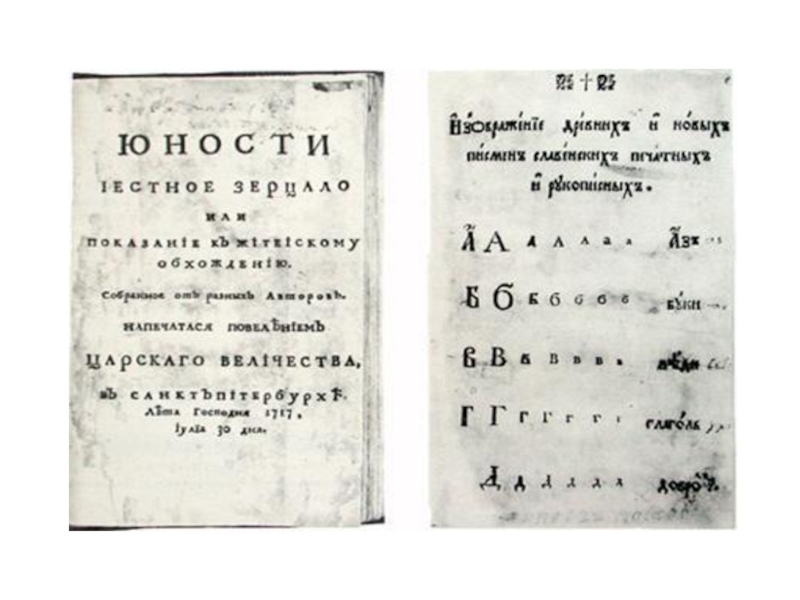 ЮНОСТИ
ЧЕСТНОЕ ЗЕРЦАЛО
ИЛИ
ПОКАЗАНІЕ КЪ ЖІТЕІСКОМУ
ОБХОЖДЕНІЮ.
Собранное отъ разныхъ Авторовъ.
НАПЕЧАТАСЯ ПОВЕЛѢНІЕМЪ
ЦАРСКАГО ВЕЛІЧЕСТВА,
ВЪ САНКТЪПІТЕРБУРХѢ.
Лѣта Господня 1717,
Іулїа 30 дня.
И҆зѡбраже́нїе дре́внихъ и҆ но́выхъ
пи́сменъ славе́нскихъ печа́тныхъ
и҆ рꙋкопи́сныхъ.
А А А А а а А҆зъ
Б Б Б б б б б бꙋ́ки
В В в в в в в вѣ́ди
Г Г г г г г г глаго́ль
Д д д д д д добро̀